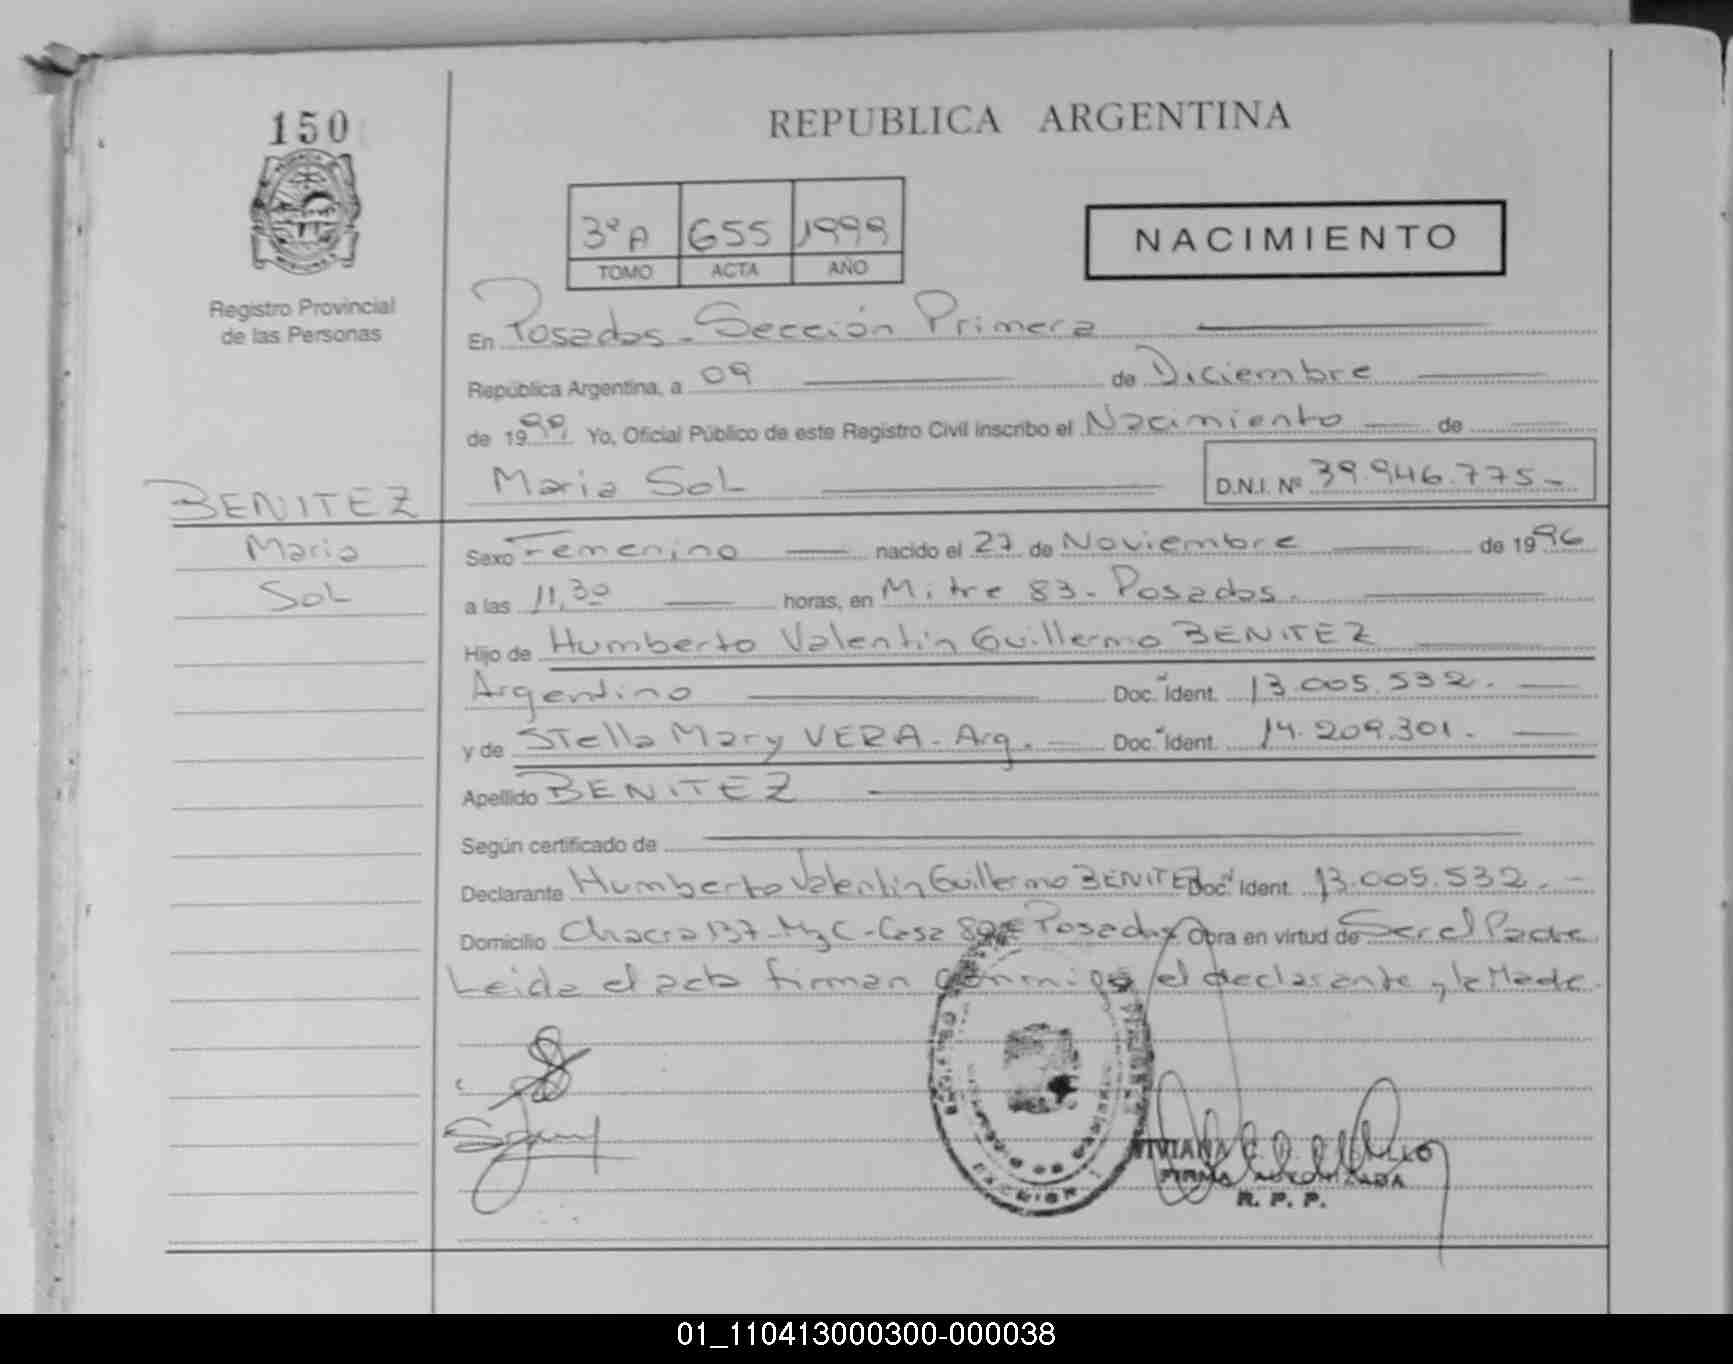 150
REPUBLICA ARGENTINA
3º A 655 1999
TOMO ACTA AÑO
NACIMIENTO
Registro Provincial
de las Personas
En Posadas - Sección Primera
República Argentina, a 09 de Diciembre
de 1999 Yo, Oficial Público de este Registro Civil inscribo el Nacimiento de
Maria Sol D.N.I. Nº 39.946.775-
BENITEZ
Maria
Sol
Sexo Femenino nacido el 27 de Noviembre de 1996
a las 11,30 horas, en Mitre 83 - Posadas.
Hijo de Humberto Valentin Guillermo BENITEZ
Argentino Doc. Ident. 13.005.532.
y de Stella Mary VERA - Arg. Doc. Ident. 14.209.301.
Apellido BENITEZ
Según certificado de
Declarante Humberto Valentin Guillermo BENITEZ Doc. Ident. 13.005.532.
Domicilio Chacra 137 - Mz C - Casa Posadas Obra en virtud de Ser el Padre
Leida el acta firman conmigo el declarante y la Madre.
VIVIANA
FIRMA AUTORIZADA
R. P. P.
01_110413000300-000038